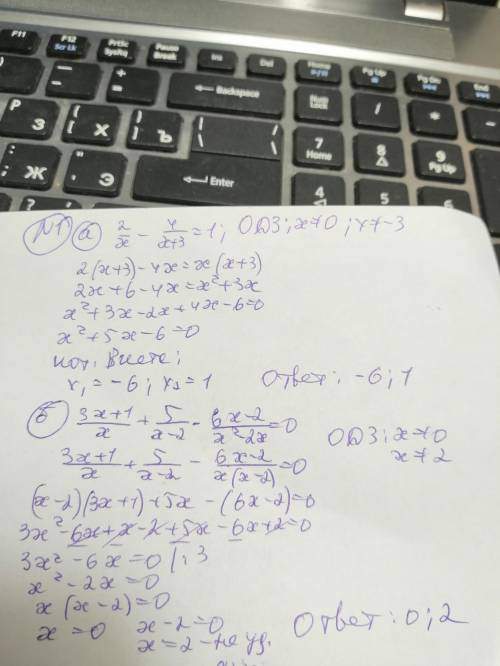 F11 F12 Scr Lk Prt Sc SysRq Pause Break Ins Del Home Pg Up Pg Dn End
— - + = ← Backspace Num Lock / * -
Р З { [ Х } ] Ъ | \ 7 Home 8 9 Pg Up
: ; Ж " ' Э ← Enter 4 5 6
?
N1 а) 2/x - 4/(x+3) = 1; ОДЗ; x≠0; x≠-3
2(x+3)-4x=x(x+3)
2x+6-4x=x²+3x
x²+3x-2x+4x-6=0
x²+5x-6=0
по т. Виета;
x₁=-6; x₂=1 Ответ: -6; 1
б) (3x+1)/x + 5/(x-2) - (6x-2)/(x²-2x) = 0 ОДЗ: x≠0
(3x+1)/x + 5/(x-2) - (6x-2)/(x(x-2)) = 0 x≠2
(x-2)(3x+1)+5x-(6x-2)=0
3x²-6x+x-2+5x-6x+2=0
3x²-6x=0 |:3
x²-2x=0
x(x-2)=0
x=0 x-2=0 Ответ: 0; 2
x=2 - не уд.